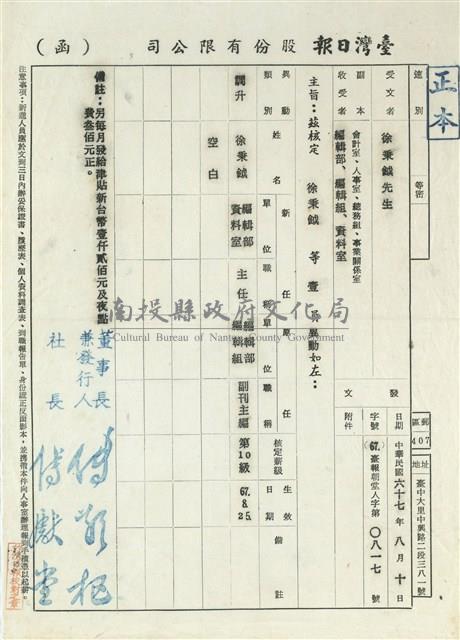 臺灣日報股份有限公司（函）
正本
郵區
407
地址
臺中大里中興路二段三八一號
速別
等密
受文者
徐秉鉞先生
副本收受者
會計室、人事室、總務組、事業關係室
編輯部、編輯組、資料室
發文
日期
中華民國六十七年八月十日
字號
(67)臺報朝堂人字第〇八一七號
附件
主旨：茲核定 徐秉鉞 等壹員異動如左：
異動類別
姓名
新任
單位
職稱
原任
單位
職稱
核定薪級
生效日期
備註
調升
徐秉鉞
編輯部
資料室
主任
編輯部
編輯組
副刊主編
第10級
67.8.25.
空白
備註：另每月發給津貼新台幣壹仟貳佰元及夜點
費叁佰元正。
董事長
兼發行人
社長
注意事項：新進人員應於文到三日內辦妥保證書、履歷表、個人資料調查表、到職報告單、身份證正反面影本，並攜帶本件向人事室辦理報到手續憑以起薪。
南投縣政府文化局
Cultural Bureau of Nantou County Government